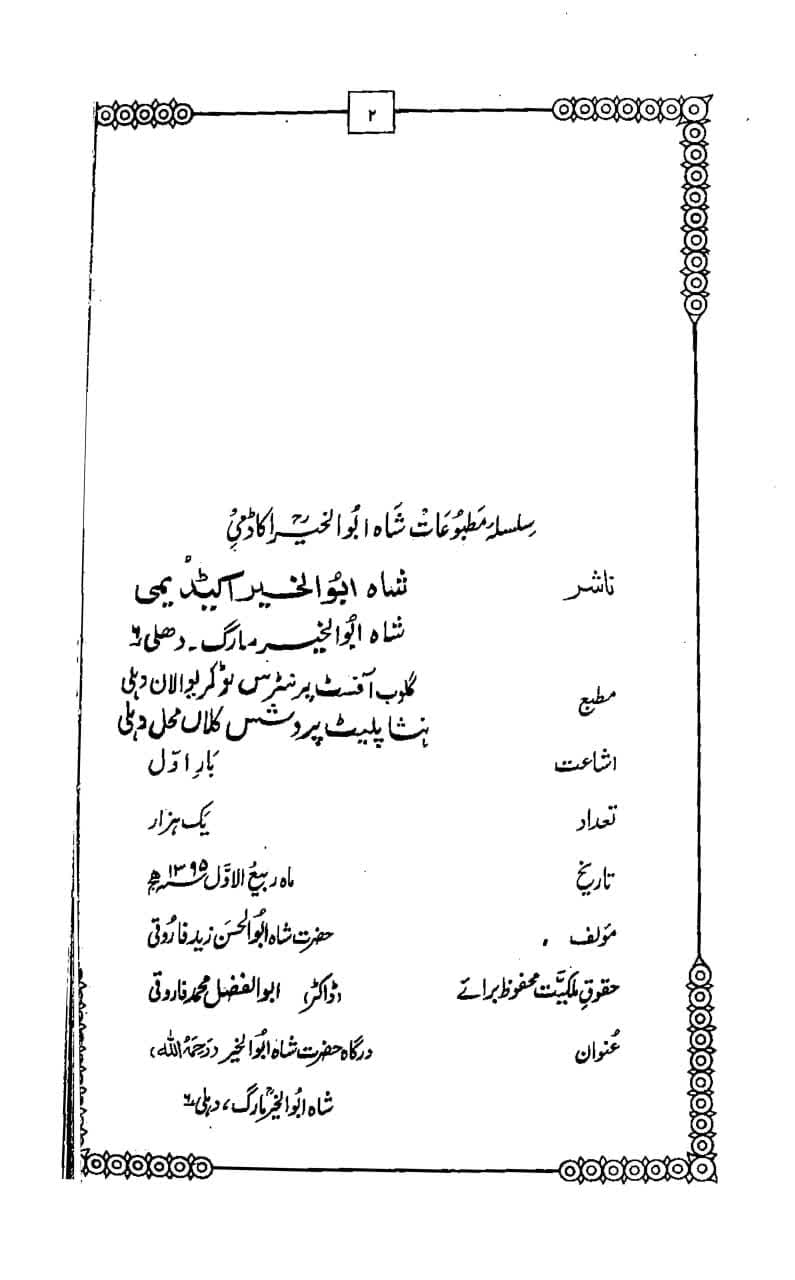 ۲
سلسلۂ مطبوعات شاہ ابوالخیرؒ اکاڈمی
ناشر شاہ ابوالخیر اکیڈیمی
شاہ ابوالخیر مارگ۔ دھلی ۶
مطبع گلوب آفسٹ پرنٹرس ٹوکریوالان دہلی
پلیٹ پروشس کلاں محل دہلی
اشاعت بارِ اوّل
تعداد یک ہزار
تاریخ ماہ ربیعُ الاوَّل ۱۳۹۵ھ
مؤلف حضرت شاہ ابُوالحسَن زید فارُوقی
حقوقِ ملکیَّت محفوظ برائے (ڈاکٹر) ابوالفضل محمد فاروقی
عُنوان درگاہ حضرت شاہ ابُوالخیر (رَحِمَہُ اللہ)
شاہ ابُوالخیرؒ مارگ، دہلی ۶